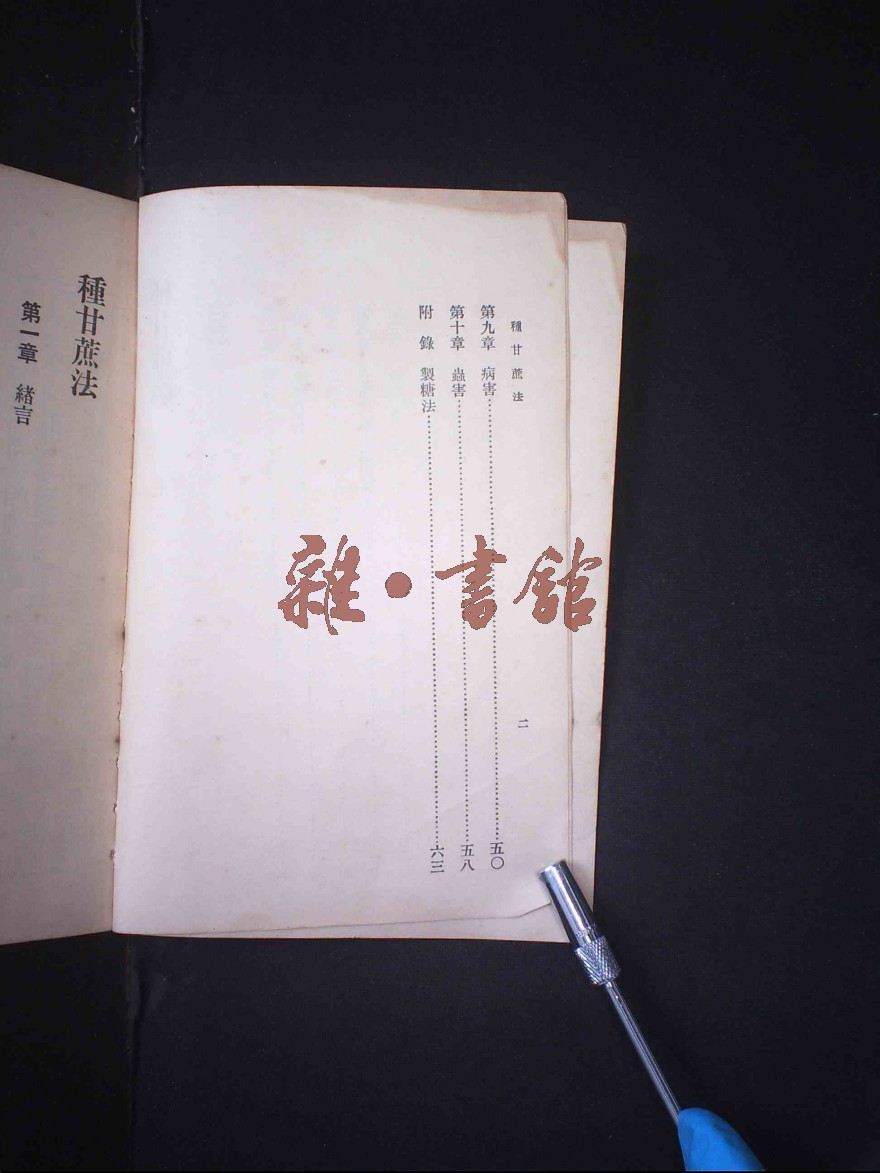 種甘蔗法
二
第九章　病害……五〇
第十章　蟲害……五八
附錄　製糖法……六三
種甘蔗法
第一章　緒言
雜·書館